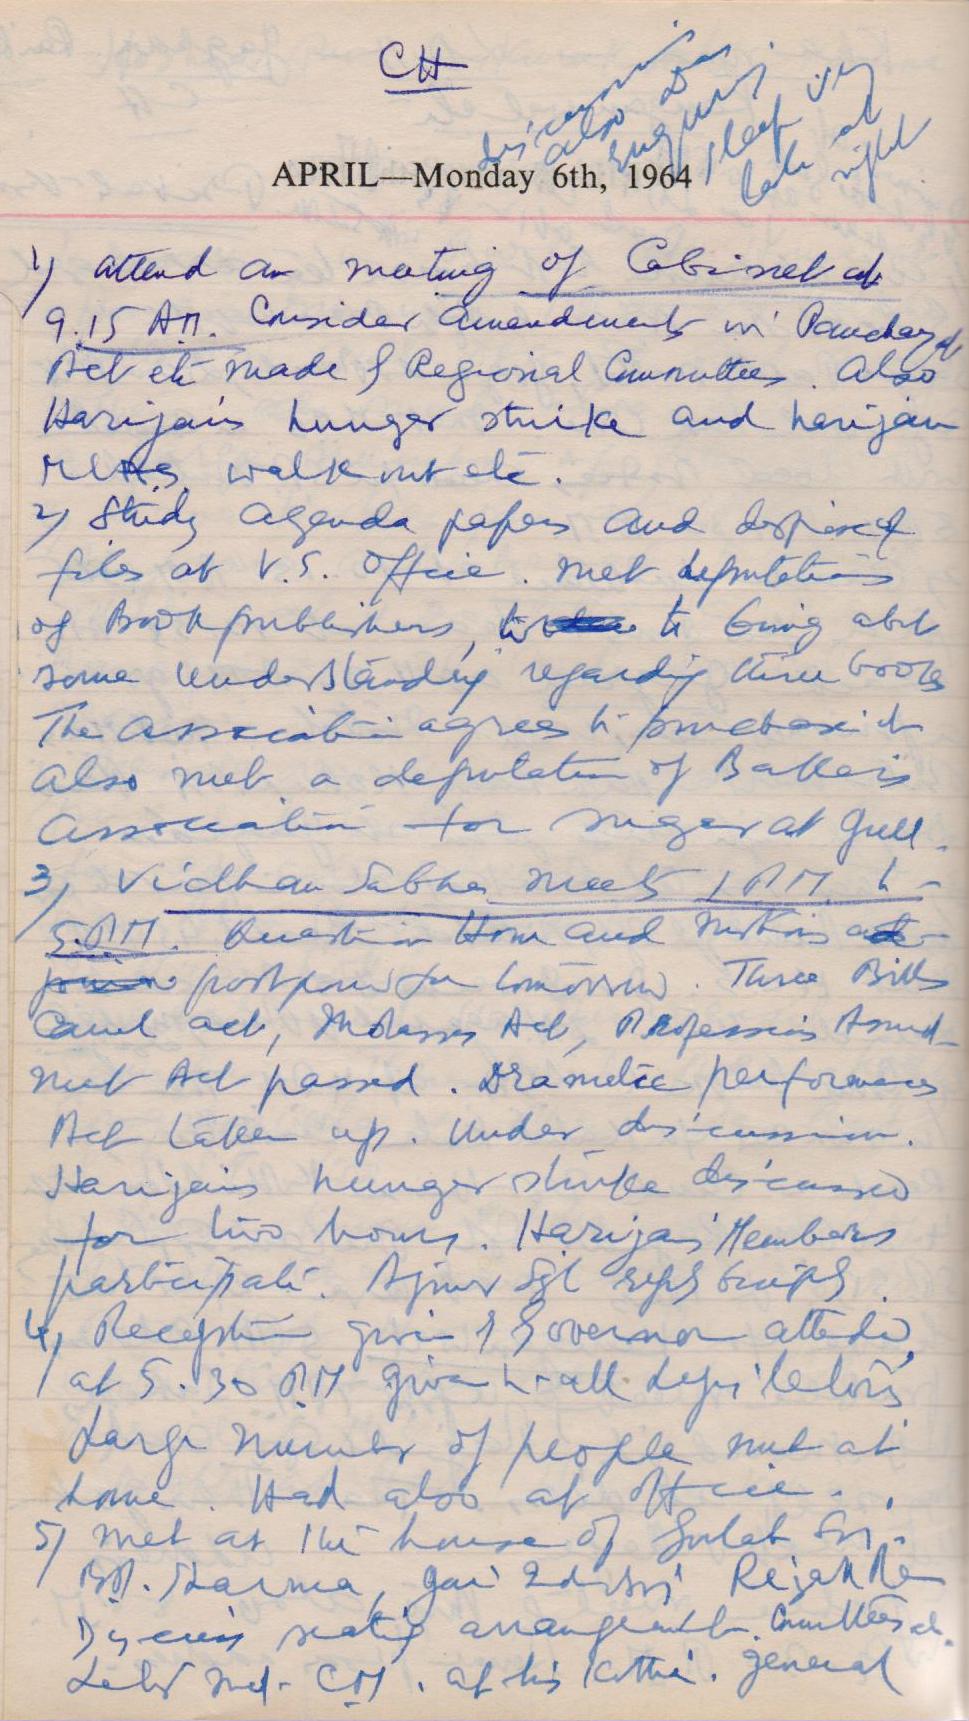 CH
discussions
also Das
Enquiry
sleep very
late at
night
APRIL—Monday 6th, 1964
1) attend an meeting of Cabinet at
9.15 AM. Consider amendments in Panchayat
Act etc made by Regional Committees. Also
Harijans hunger strike and harijan
MLAs walkout etc.
2) Study agenda papers and dispose of
files at V.S. Office. met deputations
of Book publishers, to bring abt
some understanding regarding three books
The association agrees to purchase it
Also met a deputation of Bakers
Association for sugar at
3) Vidhan Sabha meets 1 P.M. to
5.P.M. Question Hour and motions
postpone for tomorrow. Three Bills
act, Molasses Act, Profession Amend-
ment Act passed. Dramatic performances
Act taken up. Under discussion.
Harijans hunger strike discussed
for two hours. Harijan Members
participate. reply
4) Reception given by Governor attended
at 5.30 PM given to all legislators
Large number of people met at
home. Had also at office.
5) met at the house of Gulab
Sharma,
Discuss seating arrangements. Committees etc.
Later met CM. at his Kothi. general